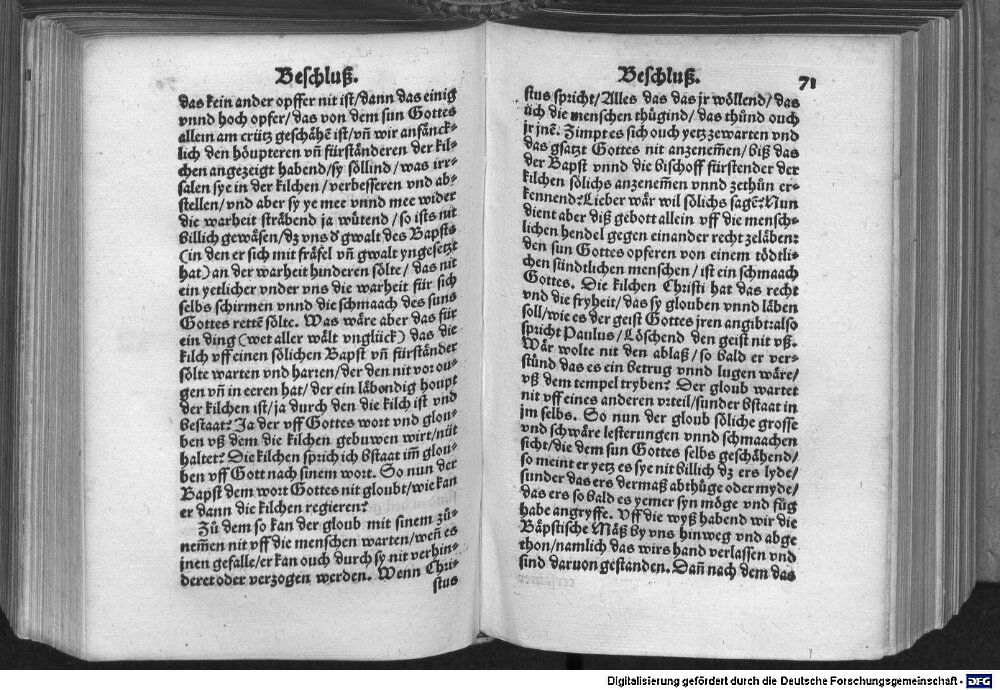 Beschluß.
das kein ander opffer nit ist/dann das einig
vnnd hoch opfer/das von dem sun Gottes
allein am crütz geschähē ist/vn̄ wir anfänck-
lich den höupteren vn̄ fürständeren der kil-
chen angezeigt habend/sy söllind/was irr-
salen sye in der kilchen/verbesseren vnd ab-
stellen/vnd aber sy ye mee vnnd mee wider
die warheit sträbend ja wütend/so ists nit
billich gewäsen/dz vns d' gwalt des Bapsts
(in den er sich mit fräfel vn̄ gwalt yngesetzt
hat) an der warheit hinderen sölte/das nit
ein yetlicher vnder vns die warheit für sich
selbs schirmen vnnd die schmaach des suns
Gottes rettē sölte. Was wäre aber das für
ein ding (wet aller wält vnglück) das die
kilch vff einen sölichen Bapst vn̄ fürständer
sölte warten vnd harren/der den nit vor ou-
gen vn̄ in eeren hat/der ein läbendig houpt
der kilchen ist/ja durch den die kilch ist vnd
bestaat? Ja der vff Gottes wort vnd glou-
ben vß dem die kilchen gebuwen wirt/nüt
haltet? Die kilchen sprich ich bstaat im̄ glou-
ben vff Gott nach sinem wort. So nun der
Bapst dem wort Gottes nit gloubt/wie kan
er dann die kilchen regieren?
Zů dem so kan der gloub mit sinem zů-
nem̄en nit vff die menschen warten/wen̄ es
jnen gefalle/er kan ouch durch sy nit verhin-
deret oder verzogen werden. Wenn Chri-
stus
Beschluß.
71
stus spricht/Alles das das jr wöllend/das
üch die menschen thügind/das thůnd ouch
jr jnē. Zimpt es sich ouch yetz zewarten vnd
das gsatzt Gottes nit anzenem̄en/biß das
der Bapst vnnd die bischoff fürstender der
kilchen sölichs anzenem̄en vnnd zethůn er-
kennend? Lieber wär wil sölichs sagē? Nun
dient aber diß gebott allein vff die mensch-
lichen hendel gegen einander recht zeläben:
den sun Gottes opferen von einem tödtli-
chen sündtlichen menschen/ist ein schmaach
Gottes. Die kilchen Christi hat das recht
vnd die fryheit/das sy glouben vnnd läben
soll/wie es der geist Gottes jren angibt:also
spricht Paulus/Löschend den geist nit vß.
Wär wolte nit den ablaß/so bald er ver-
stünd das es ein betrug vnnd lugen wäre/
vß dem tempel tryben? Der gloub wartet
nit vff eines anderen vrteil/sunder bstaat in
jm selbs. So nun der gloub söliche grosse
vnd schwäre lesterungen vnnd schmaachen
sicht/die dem sun Gottes selbs geschähend/
so meint er yetz es sye nit billich dz ers lyde/
sunder das ers dermaß abthüge oder myde/
das ers so bald es yemer syn möge vnd füg
habe angryffe. Vff die wyß habend wir die
Bäpstische Mäß by vns hinweg vnd abge
thon/namlich das wirs hand verlassen vnd
sind daruon gestanden. Dan̄ nach dem das
Digitalisierung gefördert durch die Deutsche Forschungsgemeinschaft - DFG